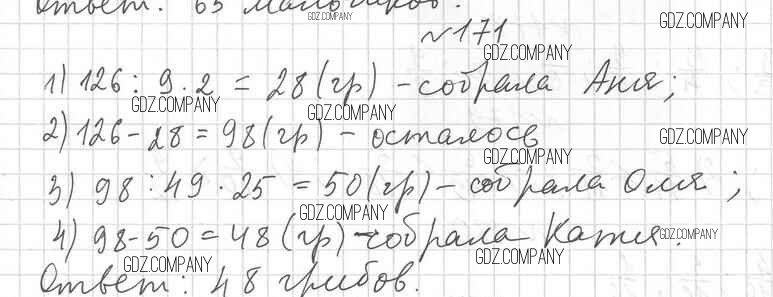 Ответ: 65 мальчиков.
GDZ.COMPANY
№171
GDZ.COMPANY
GDZ.COMPANY
1) 126 : 9 · 2 = 28 (гр) - собрала Аня;
GDZ.COMPANY
GDZ.COMPANY
2) 126 - 28 = 98 (гр) - осталось
GDZ.COMPANY
GDZ.COMPANY
3) 98 : 49 · 25 = 50 (гр) - собрала Оля;
GDZ.COMPANY
4) 98 - 50 = 48 (гр) - собрала Катя.
GDZ.COMPANY
GDZ.COMPANY
GDZ.COMPANY
Ответ: 48 грибов.